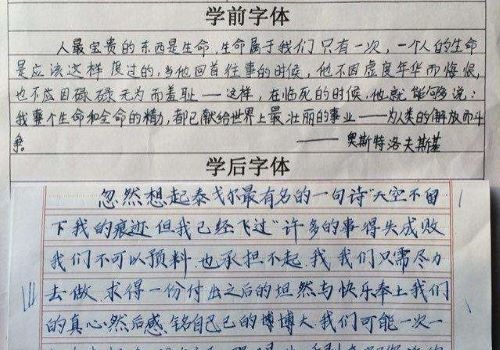 学前字体
人最宝贵的东西是生命,生命属于我们只有一次,一个人的生命
是应该这样度过的,当他回首往事的时候,他不因虚度年华而悔恨,
也不应因碌碌无为而羞耻——这样,在临死的时候,他就能够说:
我整个生命和全部的精力,都已献给世界上最壮丽的事业——为人类的解放而斗
争。——奥斯特洛夫斯基
学后字体
忽然想起泰戈尔最有名的一句诗"天空不留
下我的痕迹,但我已经飞过"许多的事得失成败
我们不可以预料 也承担不起 我 我们只需尽力
去做 求得一份付出之后的坦然与快乐奉上我们
的真心.然后感 铭自己已的博博大.我们可能一次一